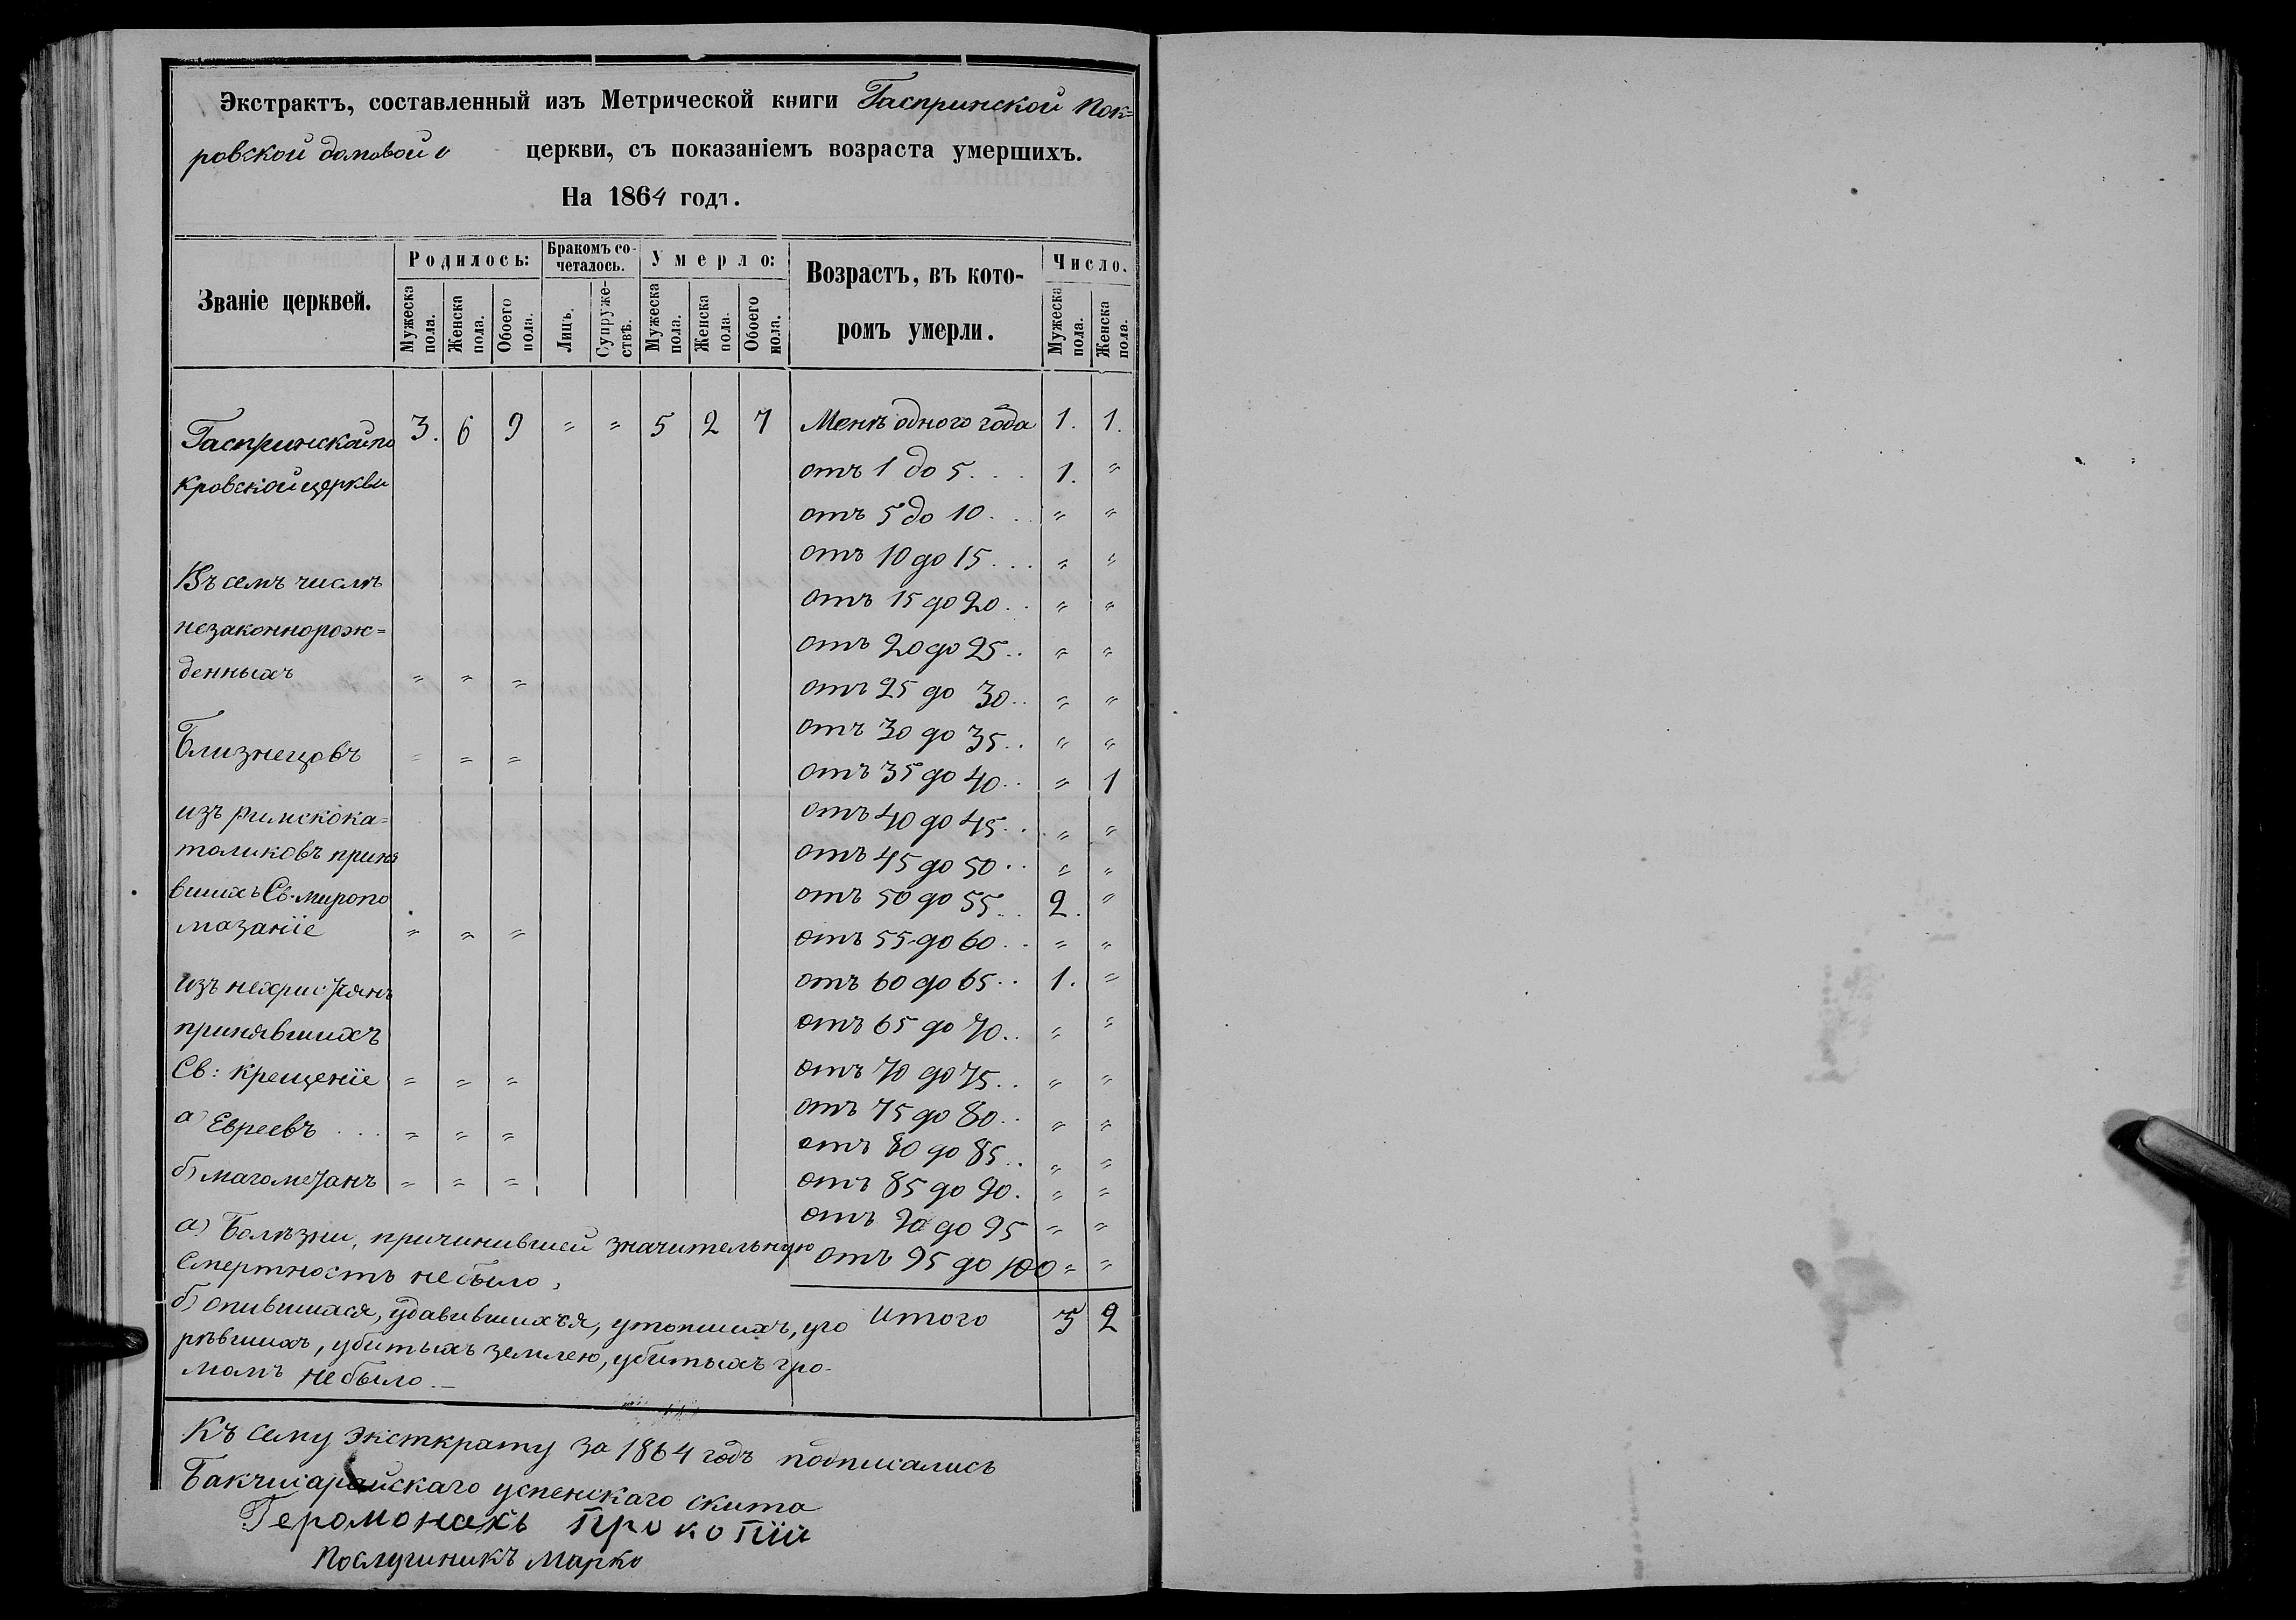 Экстрактъ, составленный изъ Метрической книги Гаспринской Пок=
ровской домовой церкви, съ показаніемъ возраста умершихъ.
На 1864 годъ.
Званіе церквей.
Родилось:
Мужеска пола.
Женска пола.
Обоего пола.
Бракомъ со-
четалось.
Лицъ.
Супруже-
ствъ.
Умерло:
Мужеска пола.
Женска пола.
Обоего пола.
Возрастъ, въ кото-
ромъ умерли.
Число.
Мужеска пола.
Женска пола.
Гаспринской по 3. 6 9 " " 5 2 7
кровской церкви
Въ семъ числѣ
незаконнорож=
денныхъ " " "
Близнецовъ " " "
изъ римскока=
толиковъ приня
вшихъ Св. миропо
мазаніе " " "
изъ нехристіянъ
принявшихъ
Св: крещеніе " " "
а) Евреевъ . . . " " "
б) магометанъ " " "
Менѣ одного года 1. 1.
отъ 1 до 5. . . 1. "
отъ 5 до 10. . . " "
отъ 10 до 15. . . " "
отъ 15 до 20. . " "
отъ 20 до 25. . " "
отъ 25 до 30. . " "
отъ 30 до 35. . " "
отъ 35 до 40. . " 1
отъ 40 до 45. . . " "
отъ 45 до 50. . " "
отъ 50 до 55. . 2. "
отъ 55 до 60. . " "
отъ 60 до 65. . 1. "
отъ 65 до 70. . " "
отъ 70 до 75. . " "
отъ 75 до 80. . " "
отъ 80 до 85. . " "
отъ 85 до 90. " "
отъ 90 до 95 " "
отъ 95 до 100 " "
итого 5 2
а) Болѣзни, причинившей значительную
смертность небыло,
б) опившихся, удавившихся, утопшихъ, уго
рѣвшихъ, убитыхъ землею, убитыхъ гро-
момъ небыло.—
Къ сему эксткрату за 1864 годъ подписались
Бакчисарайскаго успенскаго скита
Іеромонахъ Прокопій
Послушникъ Марко